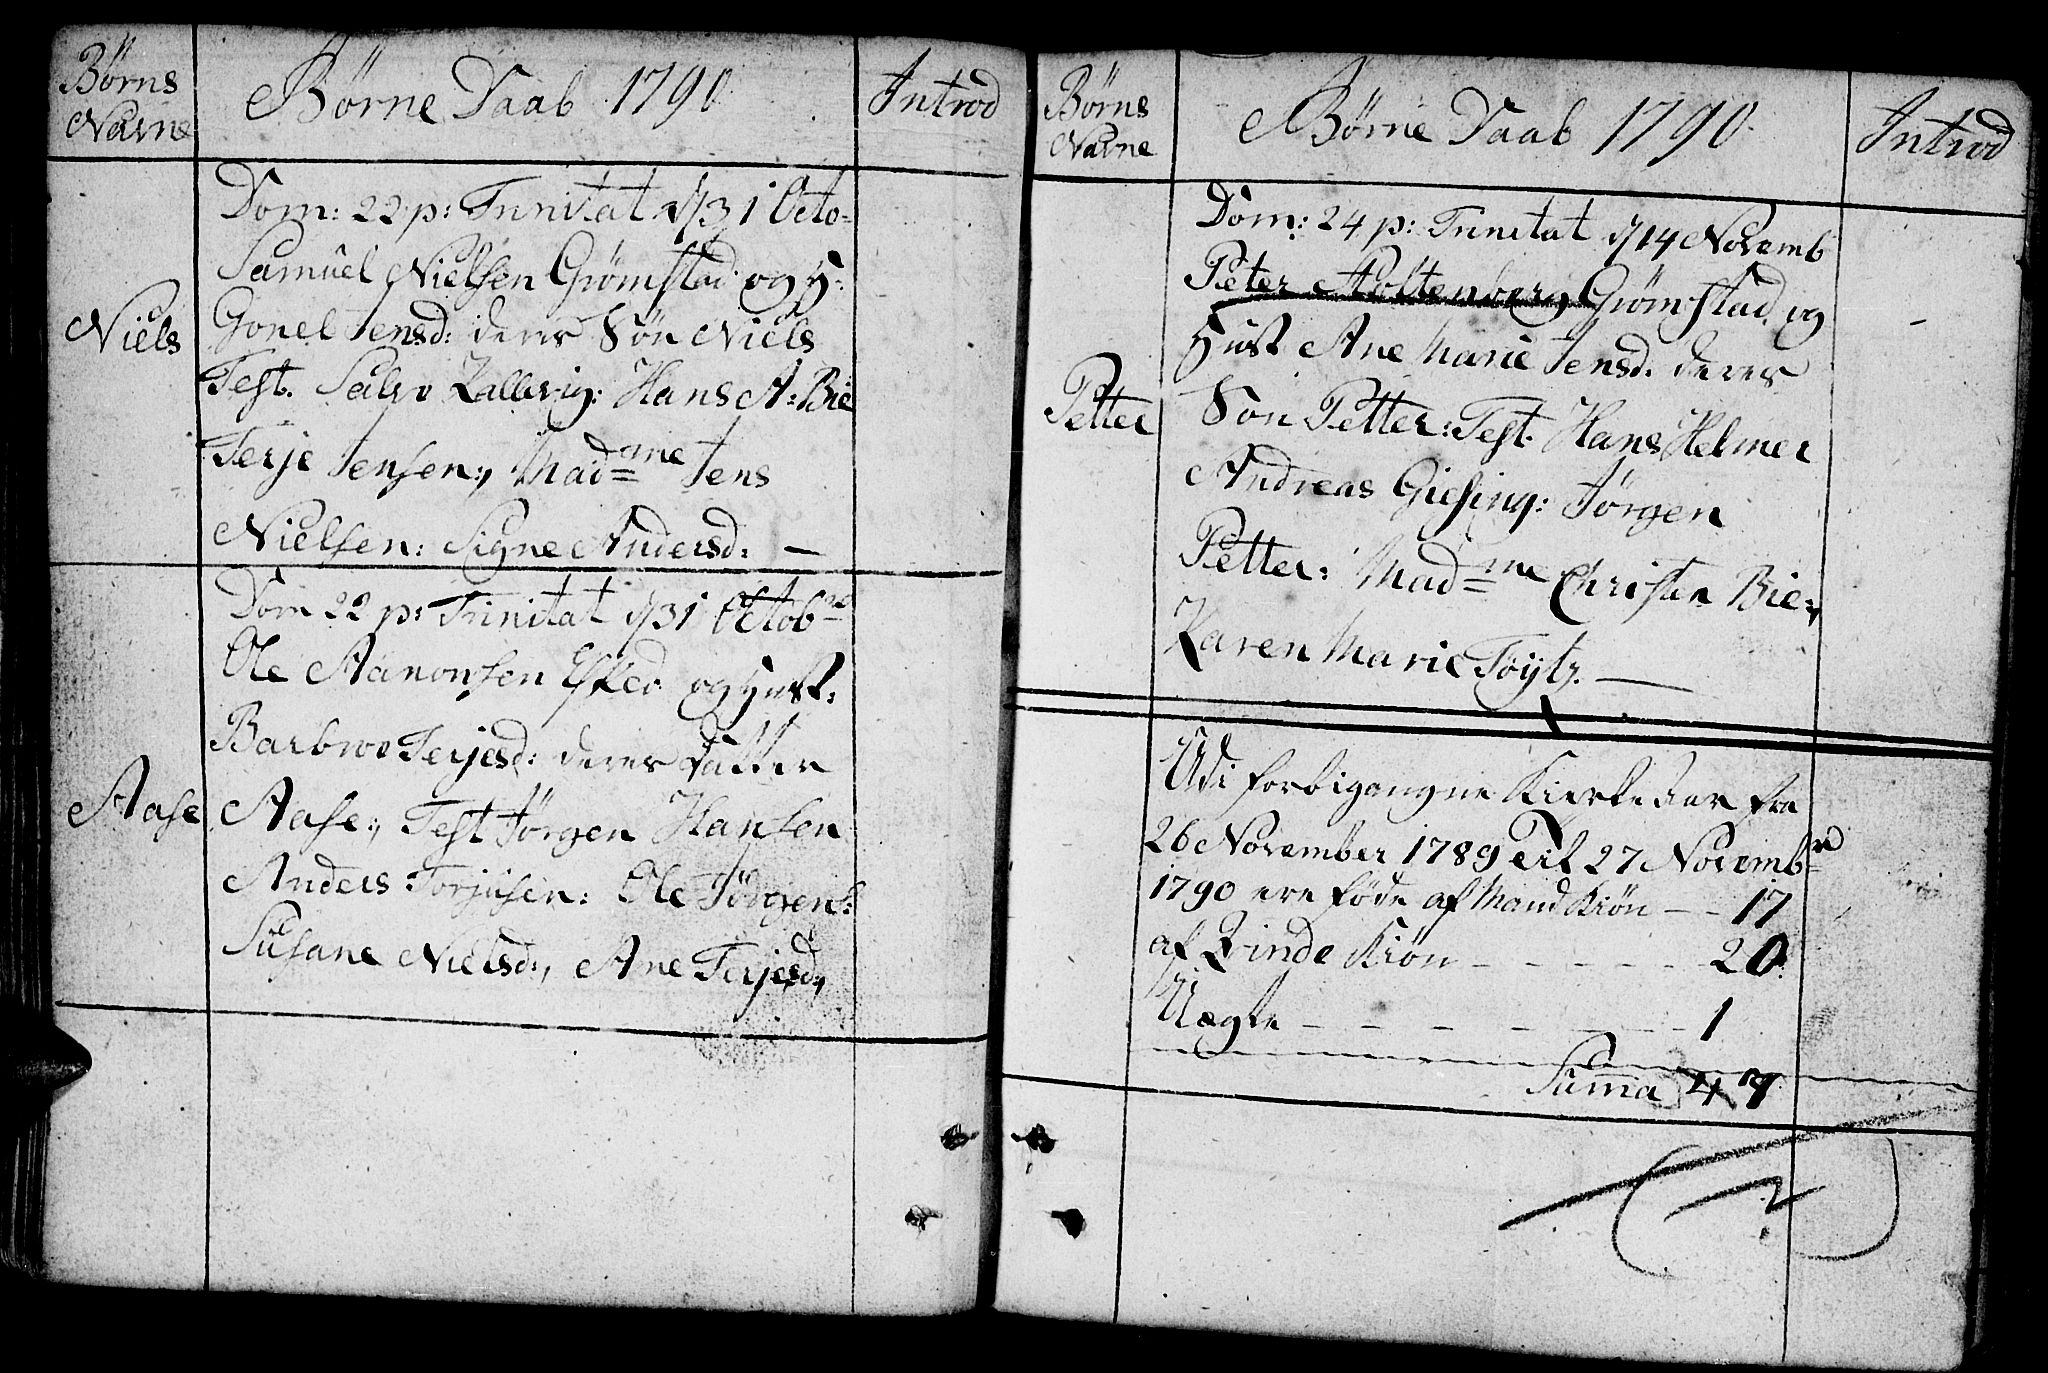 Børns
Navne
Børne Daab 1790
Introd
Dom: 22 p: Trinitat d/31 Octo-
Samuel Nielsen Grømstad og H:
Gonel Jensd: deres Søn Niels
Niels
Test. Salve Kallevig: Hans A: Bie
Terje Jensen:, Madme Jens
Nielsen: Signe Andersd: —
Dom 22 p: Trinitat d/31 Octobre
Ole Aanonsen og Hust:
Barbroe Terjesd: deres Datter
Aase
Aase:, Test Jørgen Hansen
Anders Torjusen: Ole Jørgens:
Susane Nielsd:, Ane Terjesd:,
Børns
Navne
Børne Daab 1790
Introd
Dom: 24 p: Trinitat d/14 Novemb
Peter Holtenberg Grømstad og
Hust Ane Marie Jensd: deres
Petter
Søn Petter: Test. Hans Helmer
Andreas Giesing: Jørgen
Petter: Madme Christen Bie:,
Karen Marie —
Udi forbigangne Kirke Aar fra
26 November 1789 til 27 Novembre
1790 ere føde af Mand Kiøn — - 17
af Qvinde Kiøn — — — — — 20
Uægte — — — — — — 1
Suma 47